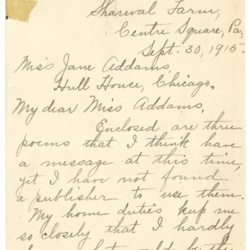 Sharwal Farm,
Centre Square, Pa,
Sept. 30, 1915.
Miss Jane Addams,
Hull House, Chicago,
My dear Miss Addams,
Enclosed are three
poems that I think have
a message at this time
yet I have not found
a publisher to use them.
My home duties keep me
so closely that I hardly